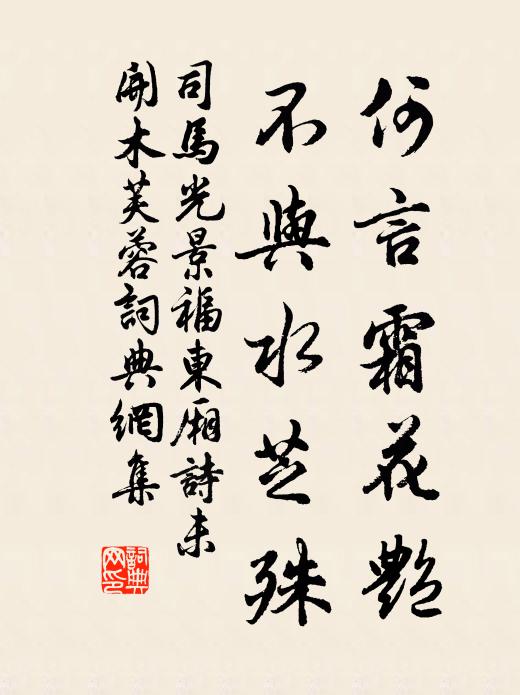 何言霜花艷
不與水芝殊
司馬光景福東廂詩未
開木芙蓉詞典網集
詞典網印